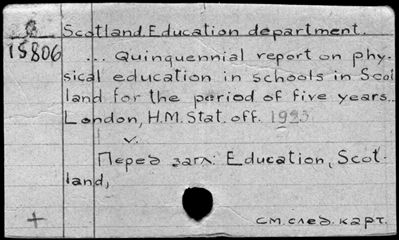 Scotland. Education department.
15806
... Quinquennial report on phy-
sical education in schools in Scot
land for the period of five years..
London, H.M. Stat. off. 1925
v.
Перед загл: Education, Scot-
land,
+ см. след. карт.